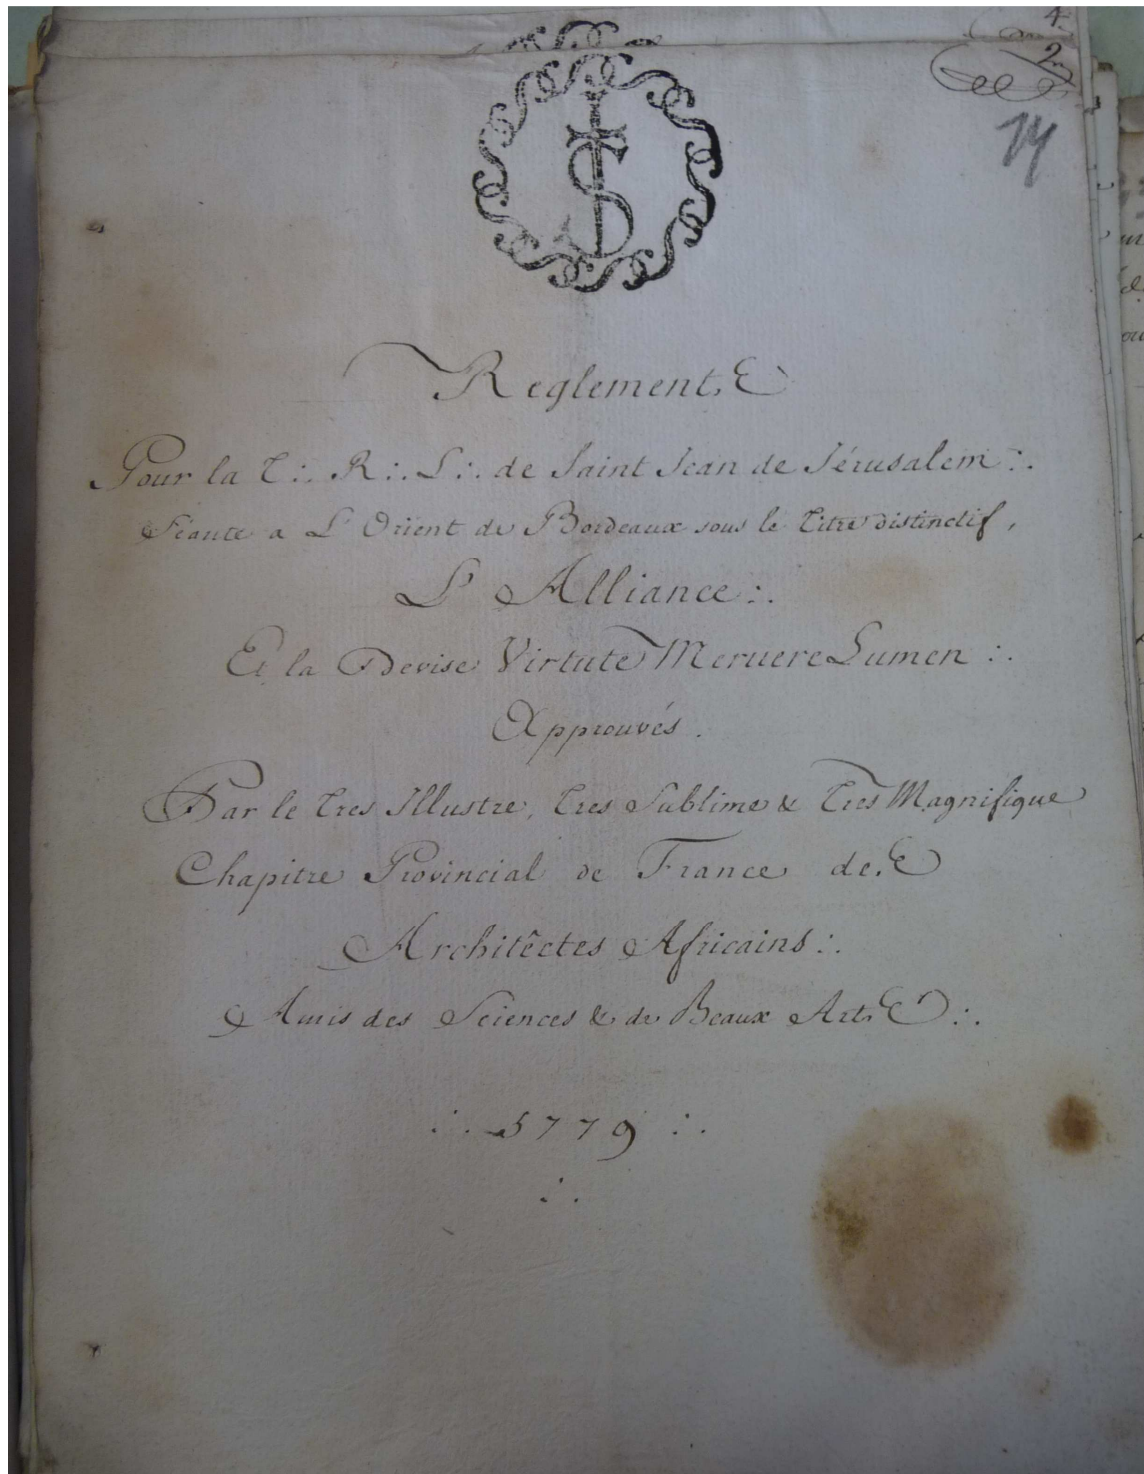 4.
2
14
Reglements
Pour la T∴ R∴ L∴ de Saint Jean de Jérusalem ∴
Séante a L'Orient de Bordeaux sous le titre distinctif,
L'Alliance ∴
Et la Devise Virtute Meruere Lumen ∴
Approuvés.
Par le tres Illustre, tres Sublime & tres Magnifique
Chapitre Provincial de France des
Architêctes Africains ∴
Amis des Sciences & de Beaux Arts ∴
∴ 5779 ∴
∴